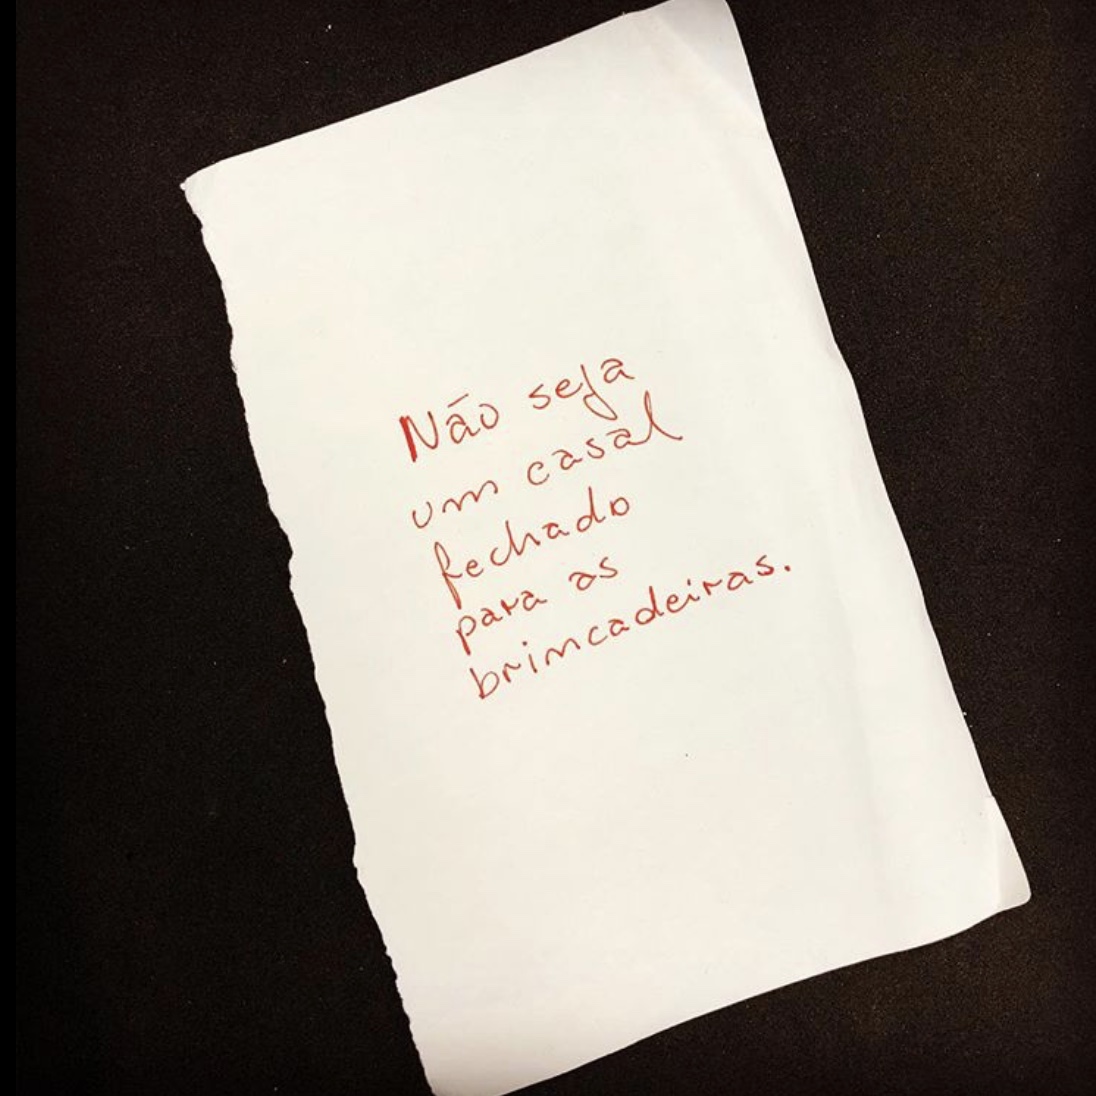 Não seja
um casal
fechado
para as
brincadeiras.